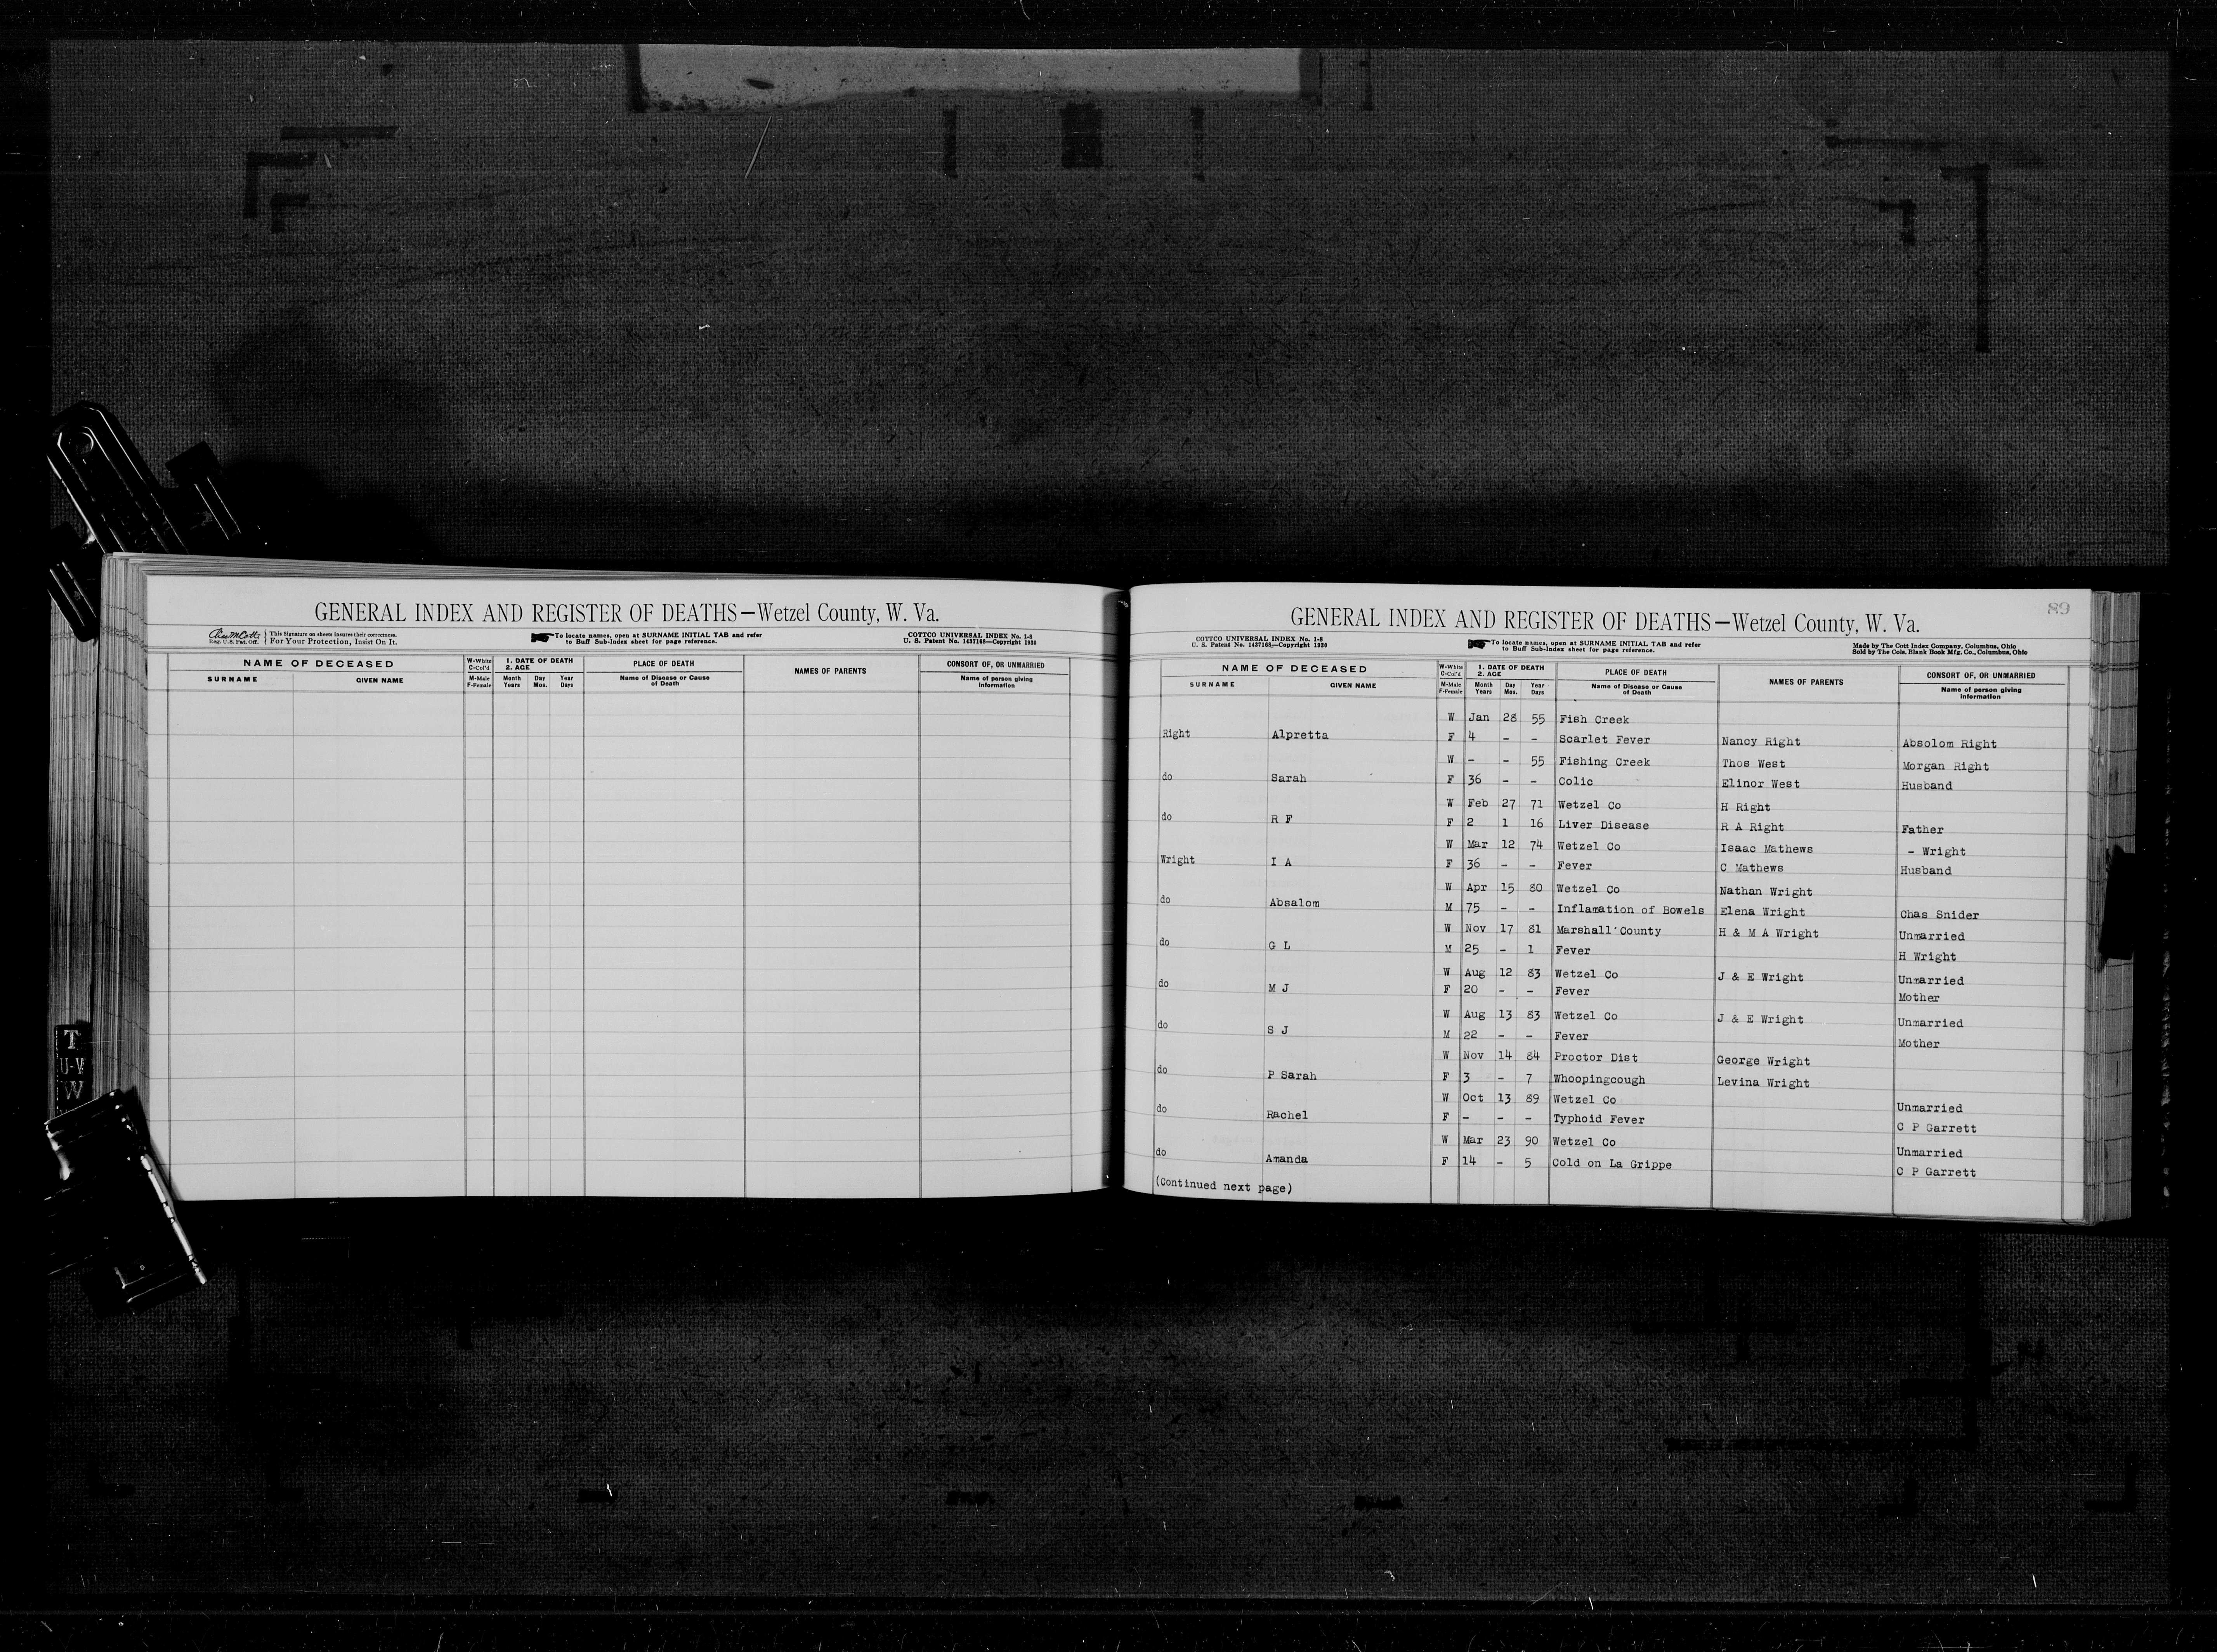 GENERAL INDEX AND REGISTER OF DEATHS—Wetzel County, W. Va.
Reg. U.S. Pat. Off. { This Signature on sheets insures their correctness. For Your Protection, Insist On It.
To locate names, open at SURNAME INITIAL TAB and refer to Buff Sub-Index sheet for page reference.
COTTCO UNIVERSAL INDEX No. 1-8
U. S. Patent No. 1437168—Copyright 1930
NAME OF DECEASED
SURNAME GIVEN NAME
W-White C-Col'd M-Male F-Female
1. DATE OF DEATH 2. AGE
Month Years Day Mos. Year Days
PLACE OF DEATH
Name of Disease or Cause of Death
NAMES OF PARENTS
CONSORT OF, OR UNMARRIED
Name of person giving information
T
U-V
W
89
GENERAL INDEX AND REGISTER OF DEATHS—Wetzel County, W. Va.
COTTCO UNIVERSAL INDEX No. 1-8
U. S. Patent No. 1437168—Copyright 1930
To locate names, open at SURNAME INITIAL TAB and refer to Buff Sub-Index sheet for page reference.
Made by The Cott Index Company, Columbus, Ohio
Sold by The Cols. Blank Book Mfg. Co., Columbus, Ohio
NAME OF DECEASED
SURNAME GIVEN NAME
W-White C-Col'd M-Male F-Female
1. DATE OF DEATH 2. AGE
Month Years Day Mos. Year Days
PLACE OF DEATH
Name of Disease or Cause of Death
NAMES OF PARENTS
CONSORT OF, OR UNMARRIED
Name of person giving information
W Jan 28 55 Fish Creek
Right Alpretta F 4 - - Scarlet Fever Nancy Right Absolom Right
W - - 55 Fishing Creek Thos West Morgan Right
do Sarah F 36 - - Colic Elinor West Husband
W Feb 27 71 Wetzel Co H Right
do R F F 2 1 16 Liver Disease R A Right Father
W Mar 12 74 Wetzel Co Isaac Mathews - Wright
Wright I A F 36 - - Fever C Mathews Husband
W Apr 15 80 Wetzel Co Nathan Wright
do Absalom M 75 - - Inflamation of Bowels Elena Wright Chas Snider
W Nov 17 81 Marshall County H & M A Wright Unmarried
do G L M 25 - 1 Fever H Wright
W Aug 12 83 Wetzel Co J & E Wright Unmarried
do M J F 20 - - Fever Mother
W Aug 13 83 Wetzel Co J & E Wright Unmarried
do S J M 22 - - Fever Mother
W Nov 14 84 Proctor Dist George Wright
do P Sarah F 3 - 7 Whoopingcough Levina Wright
W Oct 13 89 Wetzel Co Unmarried
do Rachel F - - - Typhoid Fever C P Garrett
W Mar 23 90 Wetzel Co Unmarried
do Amanda F 14 - 5 Cold on La Grippe C P Garrett
(Continued next page)